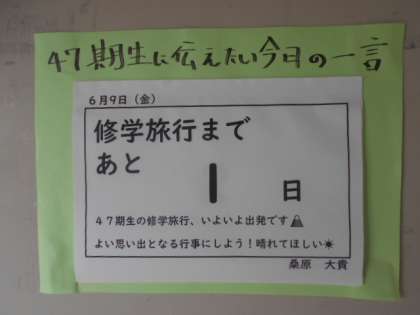 47期生に伝えたい今日の一言
6月9日（金）
修学旅行まで
あと 1 日
47期生の修学旅行、いよいよ出発です🗻
よい思い出となる行事にしよう！晴れてほしい☀
桑原 大貴